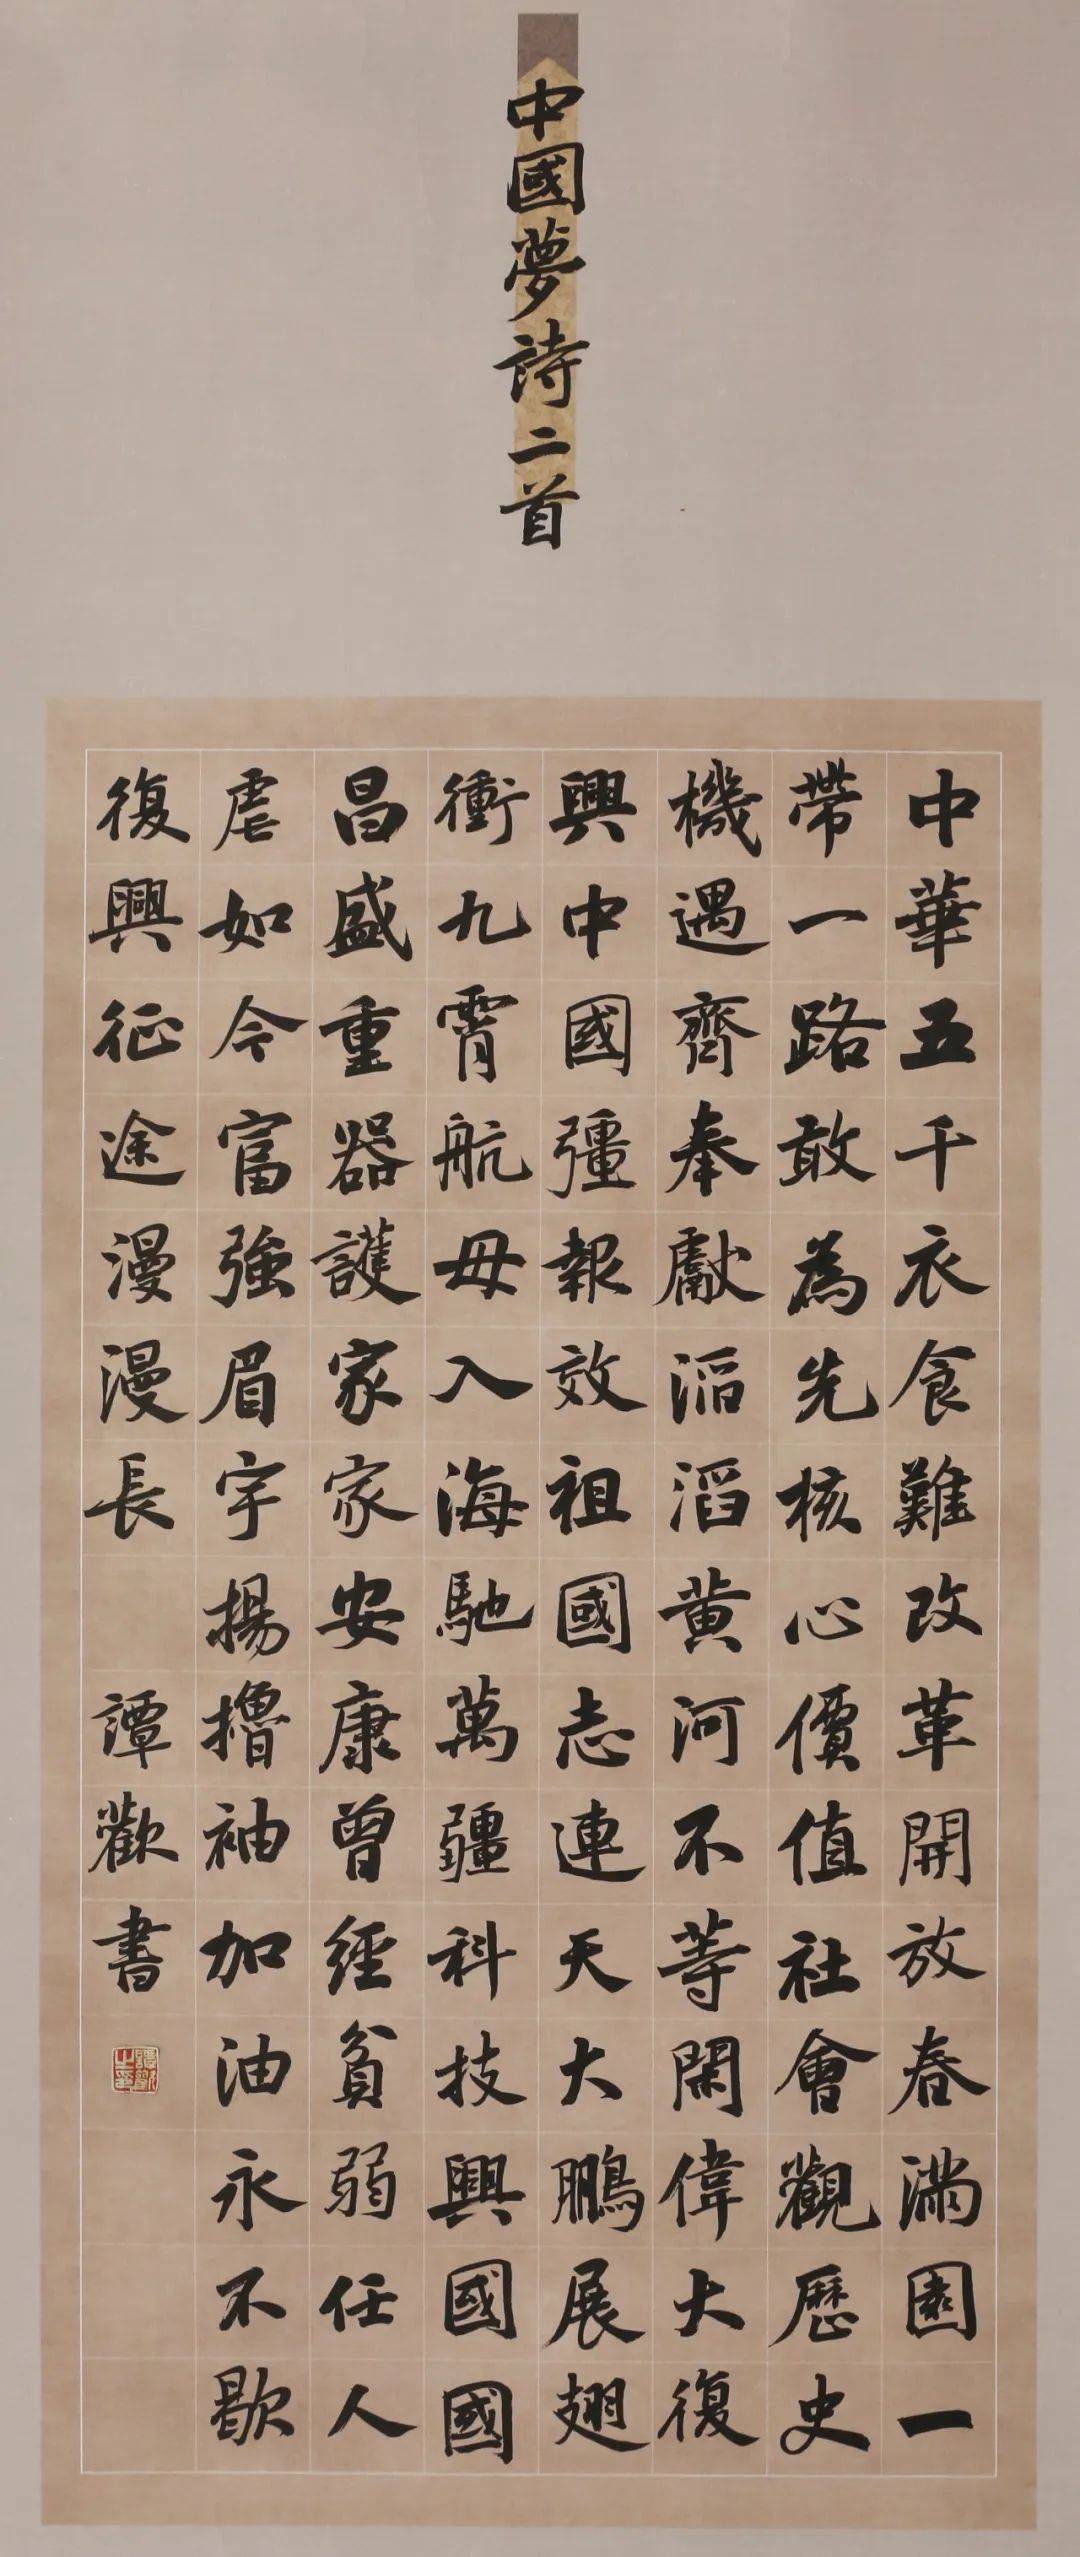 中國夢詩二首
中華五千衣食難改革開放春滿園一
帶一路敢為先核心價值社會觀歷史
機遇齊奉獻滔滔黃河不等閑偉大復
興中國彊報效祖國志連天大鵬展翅
衝九霄航母入海馳萬疆科技興國國
昌盛重器護家家安康曾經貧弱任人
虐如今富強眉宇揚擼袖加油永不歇
復興征途漫漫長 譚歡書
譚歡之印